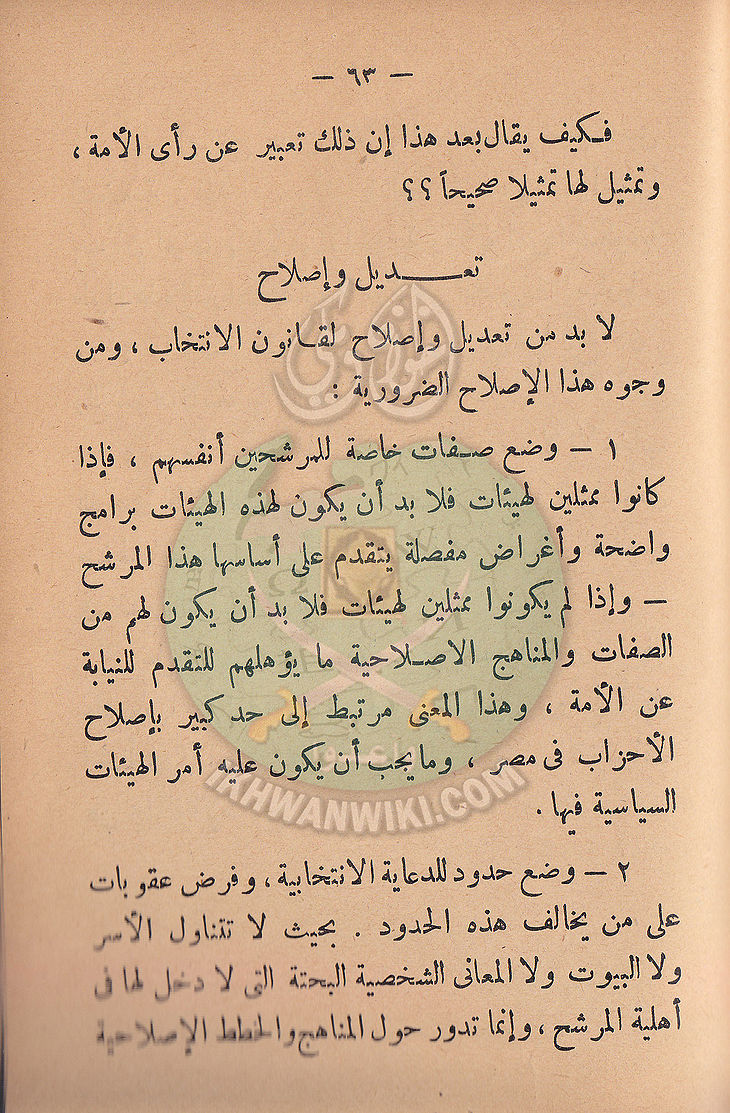 — ٦٣ —
فكيف يقال بعد هذا إن ذلك تعبير عن رأى الأمة ،
وتمثيل لها تمثيلا صحيحاً ؟؟
تعـــديل وإصلاح
لا بد من تعديل وإصلاح لقانون الانتخاب ، ومن
وجوه هذا الإصلاح الضرورية :
١ — وضع صفات خاصة للمرشحين أنفسهم ، فإذا
كانوا ممثلين لهيئات فلا بد أن يكون لهذه الهيئات برامج
واضحة وأغراض مفصلة يتقدم على أساسها هذا المرشح
— وإذا لم يكونوا ممثلين لهيئات فلا بد أن يكون لهم من
الصفات والمناهج الاصلاحية ما يؤهلهم للتقدم للنيابة
عن الأمة ، وهذا المعنى مرتبط إلى حد كبير بإصلاح
الأحزاب فى مصر ، وما يجب أن يكون عليه أمر الهيئات
السياسية فيها .
٢ — وضع حدود للدعاية الانتخابية ، وفرض عقوبات
على من يخالف هذه الحدود . بحيث لا تتناول الأسر
ولا البيوت ولا المعانى الشخصية البحتة التى لا دخل لها فى
أهلية المرشح ، وإنما تدور حول المناهج والخطط الإصلاحية
IKHWANWIKI.COM